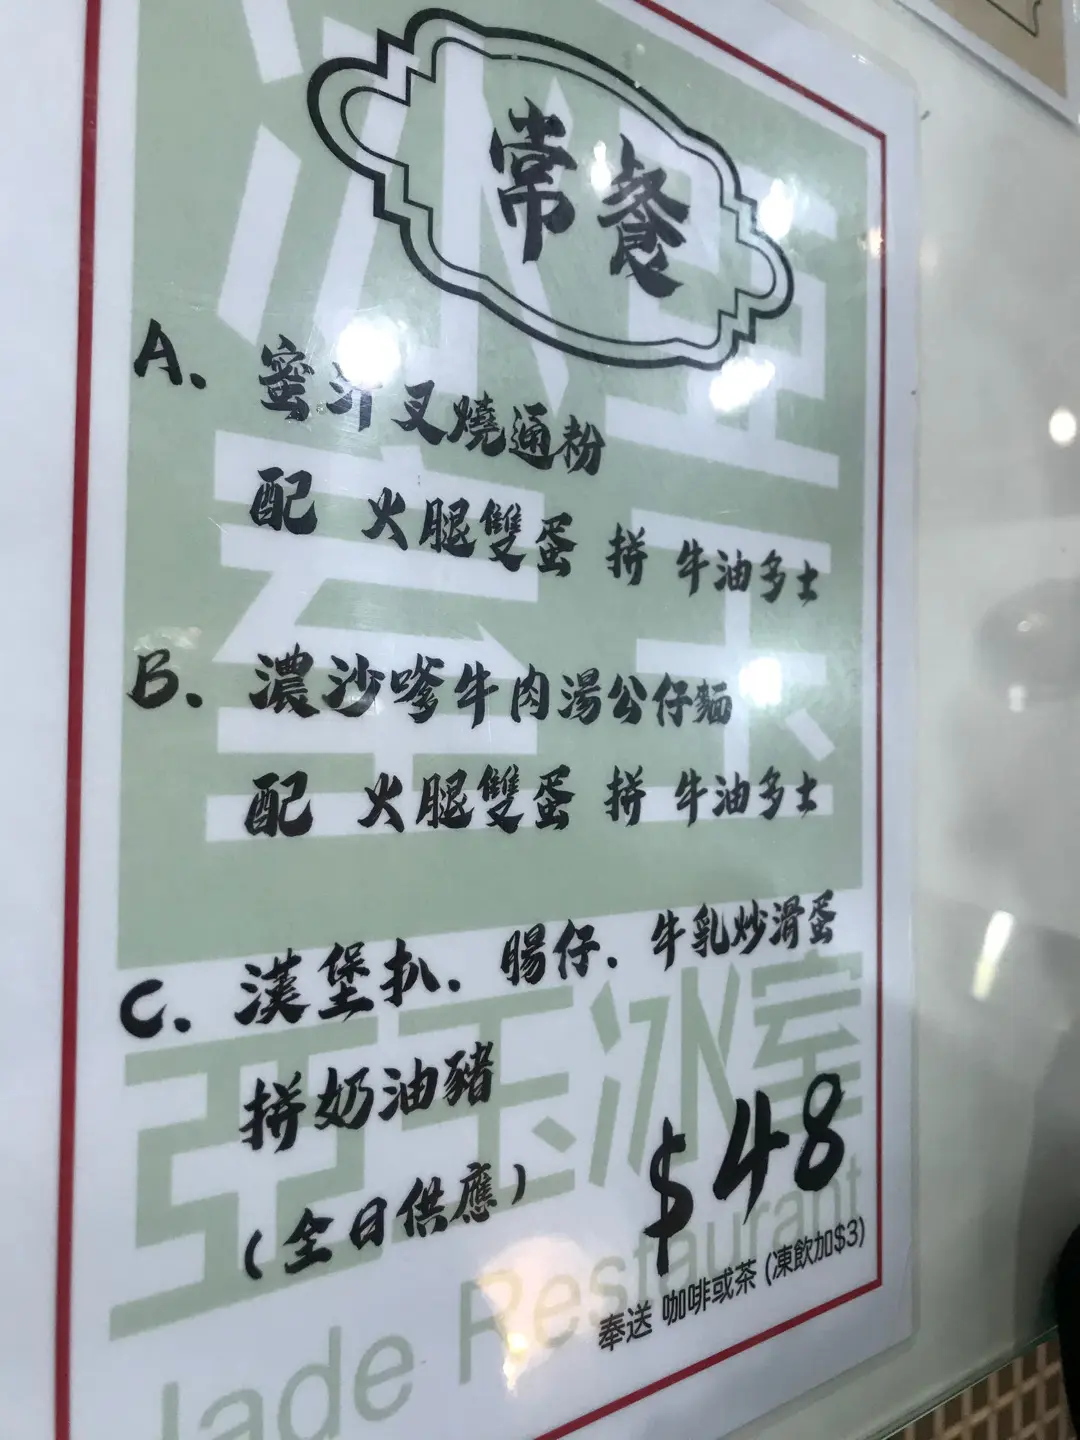 常餐
A. 蜜汁叉燒通粉
配 火腿雙蛋 拼 牛油多士
B. 濃沙嗲牛肉湯公仔麵
配 火腿雙蛋 拼 牛油多士
C. 漢堡扒. 腸仔. 牛乳炒滑蛋
拼奶油豬
(全日供應)
$48
奉送 咖啡或茶 (凍飲加$3)
亞玉冰室
Jade Restaurant